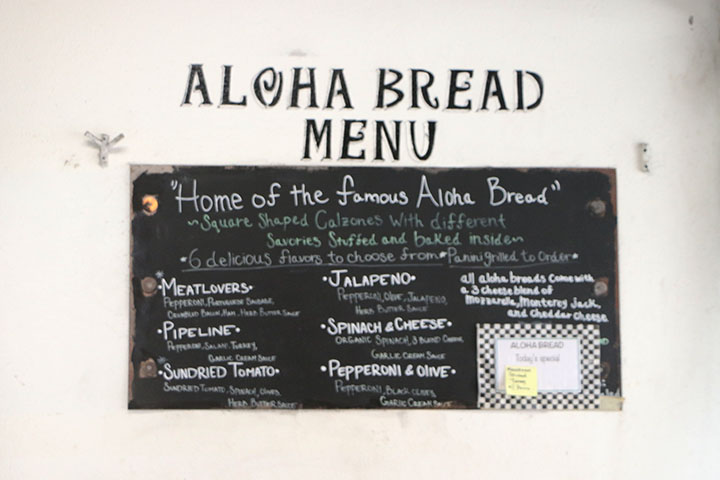 ALOHA BREAD
MENU
"Home of the famous Aloha Bread"
~Square Shaped Calzones With different
Savories Stuffed and baked inside~
*6 delicious flavors to choose from*Panini grilled to Order*
*
•MEATLOVERS•
PEPPERONI, PORTUGUESE SAUSAGE,
CRUMBLED BACON, HAM, HERB BUTTER SAUCE
•PIPELINE•
PEPPERONI, SALAMI, TURKEY,
GARLIC CREAM SAUCE
*
•SUNDRIED TOMATO•
SUNDRIED TOMATO, SPINACH, OLIVES,
HERB BUTTER SAUCE
•JALAPENO•
PEPPERONI, OLIVE, JALAPENO,
HERB BUTTER SAUCE
•SPINACH & CHEESE•
ORGANIC SPINACH, 3 BLEND CHEESE,
GARLIC CREAM SAUCE
•PEPPERONI & OLIVE•
PEPPERONI, BLACK OLIVES,
GARLIC CREAM SAUCE
all aloha breads come with
a 3 cheese blend of
Mozzarella, Monterey Jack,
and Cheddar Cheese
ALOHA BREAD
Today's special